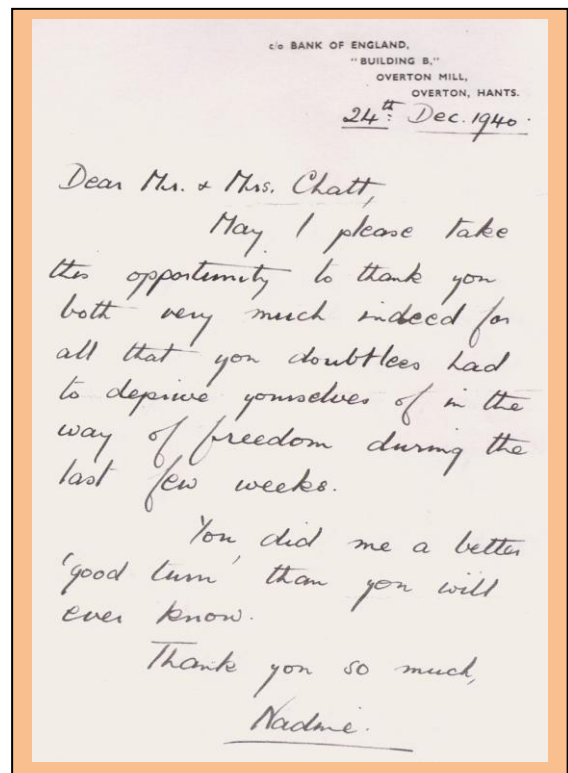 c/o BANK OF ENGLAND,
"BUILDING B,"
OVERTON MILL,
OVERTON, HANTS.
24th Dec. 1940.
Dear Mr. & Mrs. Chatt,
May I please take
this opportunity to thank you
both very much indeed for
all that you doubtless had
to deprive yourselves of in the
way of freedom during the
last few weeks.
You did me a better
'good turn' than you will
ever know.
Thank you so much,
Nadine.